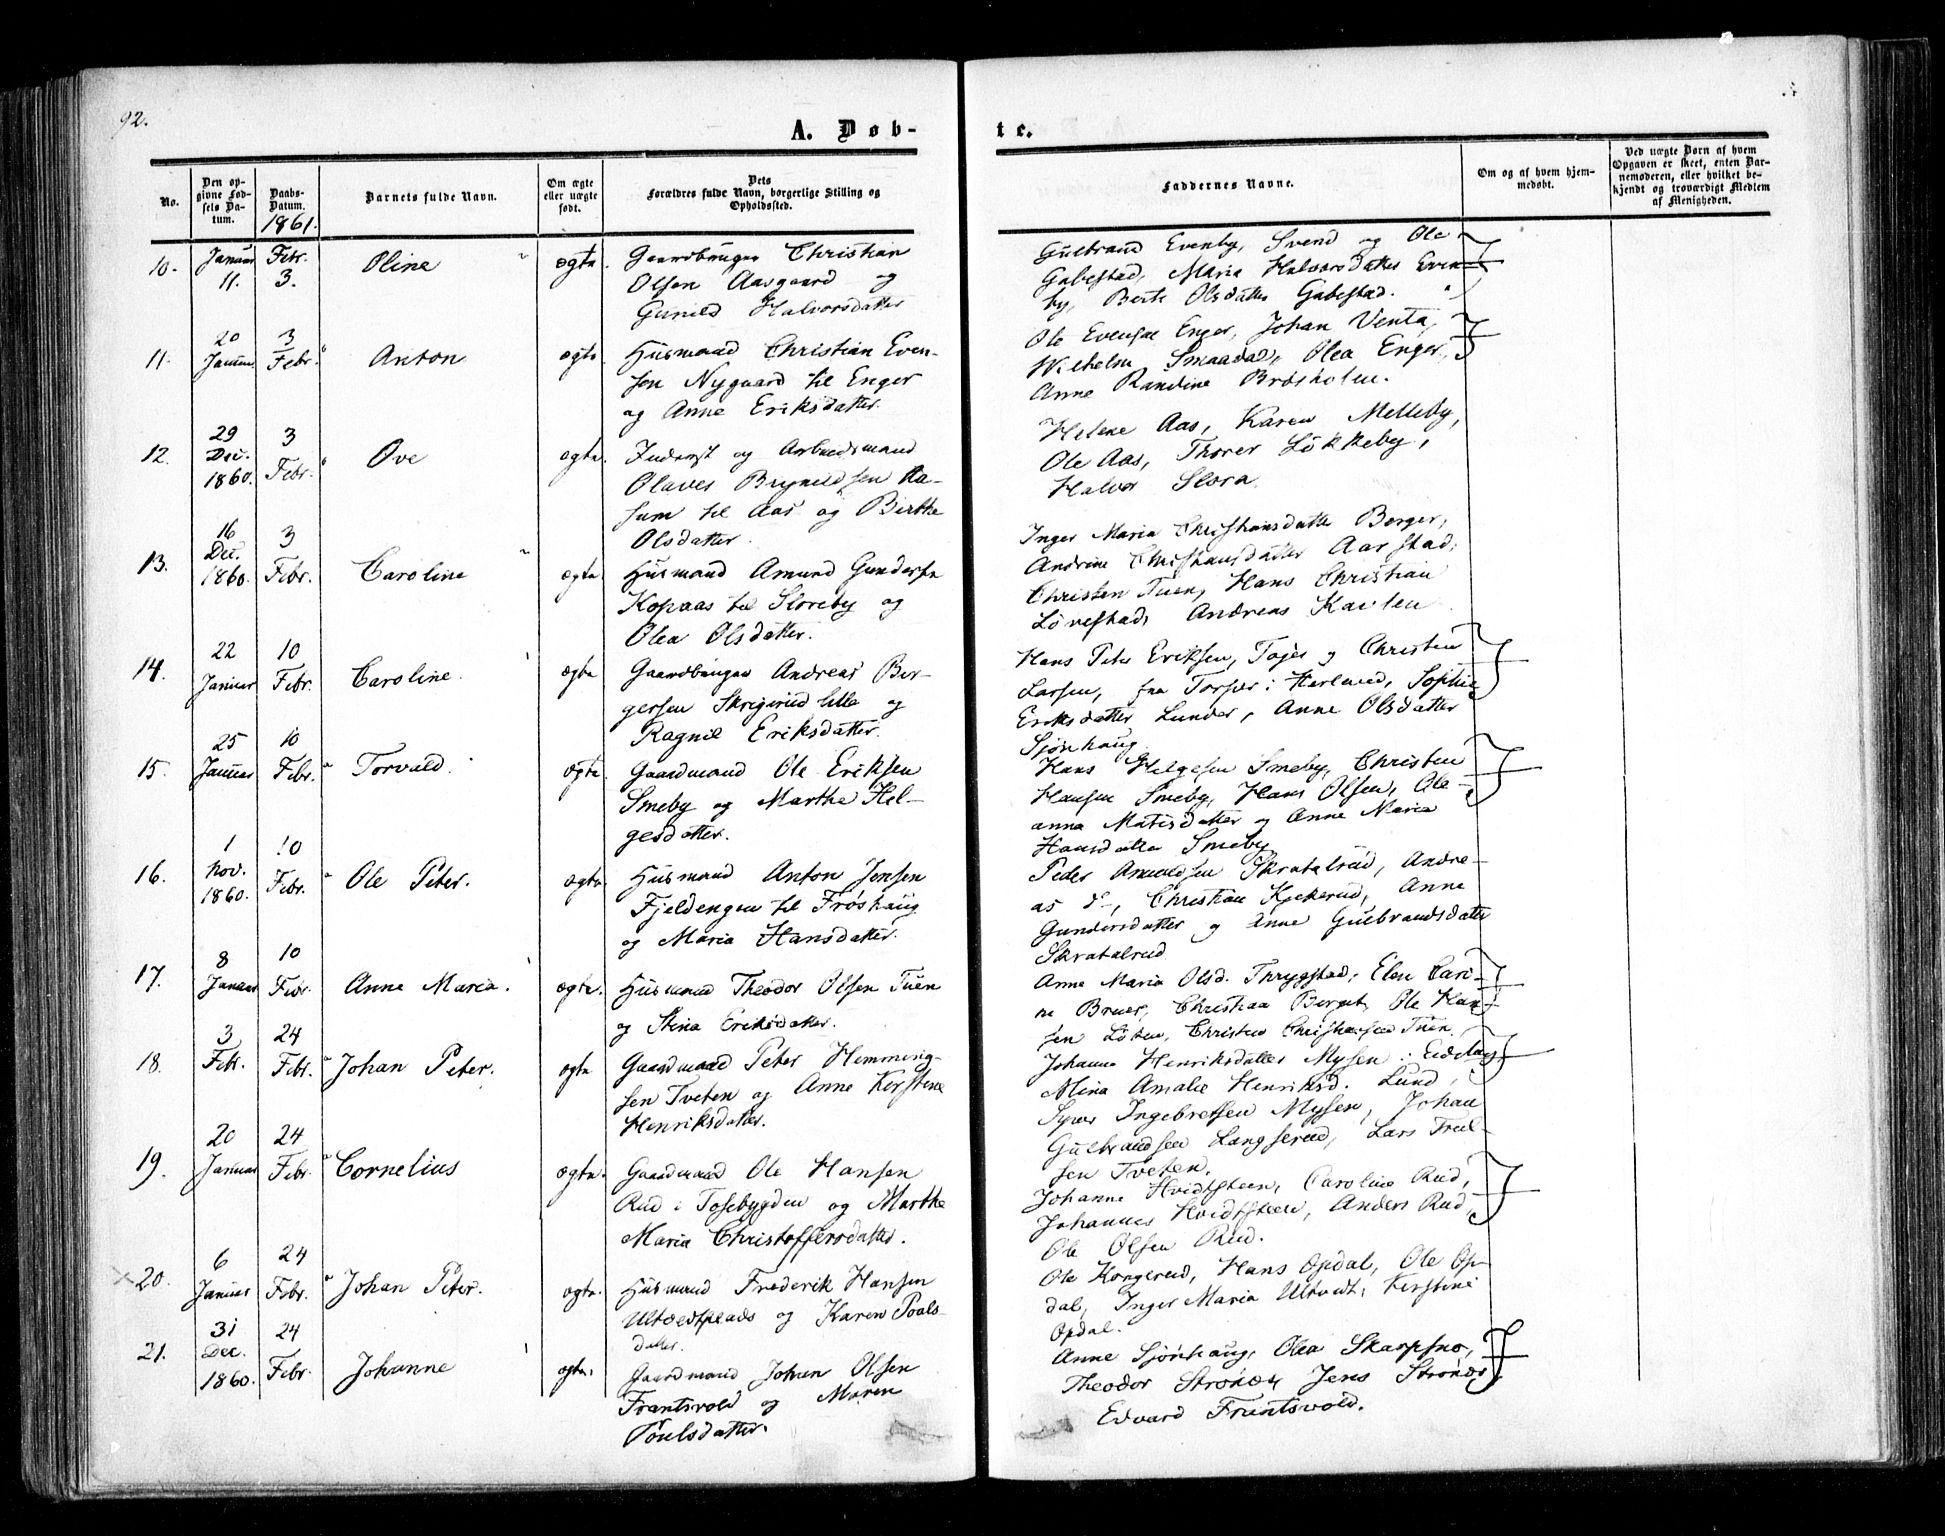 92.
A. Døb-
te.
No.
Den op-
givne Fød-
sels Da-
tum.
Daabs-
Datum.
1861.
Barnets fulde Navn.
Om ægte
eller uægte
født.
Dets
Forældres fulde Navn, borgerlige Stilling og
Opholdssted.
Faddernes Navne.
Om og af hvem hjem-
medøbt.
Ved uægte Børn af hvem
Opgaven er skeet, enten Bar-
nemoderen, eller hvilket be-
kjendt og troværdigt Medlem
af Menigheden.
10.
Januar
11.
Febr.
3.
Oline
ægte.
Gaardbruger Christian
Olsen Aasgaard og
Gunild Halvorsdatter
Gulbrand Evenby, Svend og Ole
Gabestad, Maria Halvorsdatter Even-
by, Berte Olsdatter Gabestad.
11.
20
Januar
3
Febr.
Anton
ægte
Husmand Christian Even-
sen Nygaard til Enger
og Anne Eriksdatter.
Ole Evensen Enger, Johan Venta,
Wilhelm Smaadal, Olea Enger,
Anne Randine Bråsholen.
12.
29
Dec.
1860.
3
Febr.
Ove
ægte.
Inderst og Arbeidsmand
Olaves Brynildsen Aa-
sum til Aas og Birthe
Olsdatter.
Helene Aas, Karen Melleby,
Ole Aas, Thorer Løkkeby,
Halvor Slora.
13.
16
Dec.
1860.
3
Febr.
Caroline
ægte.
Husmand Amund Gundersen
Kopaas til Sloreby og
Olea Olsdatter.
Inger Maria Christiansdatter Berger,
Andrine Christiansdatter Aarstad,
Christen Tuen, Hans Christian
Løvestad, Andreas Kavlen
14.
22
Januar
10
Febr.
Caroline.
ægte
Gaardbruger Andreas Bir-
gersen Skrigerud lille og
Ragnil Eriksdatter.
Hans Peter Eriksen, Tøjer og Christen
Larsen, fra Torper i Herland, Sophie
Eriksdatter Lunder, Anne Olsdatter
Sjønhaug
15.
25
Januar
10
Febr.
Torvald.
ægte.
Gaardmand Ole Eriksen
Smeby og Marthe Hel-
gesdatter.
Hans Helgesen Smeby, Christen
Hansen Smeby, Hans Olsen, Ole-
anna Matisdatter og Anne Maria
Hansdatter Smeby
16.
1
Nov.
1860.
10
Febr.
Ole Peter.
ægte.
Husmand Anton Jensen
Fjeldengen til Frøshaug
og Maria Hansdatter.
Peder Amundsen Skratalrud, Andre-
as do, Christian Kjekerud, Anne
Gundersdatter og Anne Gulbrandsdatter
Skratalrud
17.
8
Januar
10
Febr.
Anne Maria.
ægte.
Husmand Theodor Olsen Tuen
og Stina Eriksdatter.
Anne Maria Olsd. Thrygstad, Elen Cari-
ne Bruer, Christian Berget, Ole Han-
sen Løken, Christen Christiansen Tuen.
18.
3
Febr.
24
Febr.
Johan Peter.
ægte
Gaardmand Peter Hemming-
sen Tveten og Anne Kirstine
Henriksdatter.
Johanne Henriksdatter Mysen i Eidsberg
Mina Amalie Henriksd. Lund,
Syver Ingebretsen Mysen, Johan
Gulbrandsen Langserud, Lars Truel-
sen Tveten.
19.
20
Januar
24
Febr.
Cornelius
ægte.
Gaardmand Ole Hansen
Rud i Tosebygden og Marthe
Maria Christoffersdatter.
Johanne Hvidtsteen, Caroline Rud,
Johannes Hvidtsteen, Anders Rud,
Ole Olsen Rud.
20.
6
Januar
24
Febr.
Johan Peter.
ægte.
Husmand Frederik Hansen
Ultvedtplads og Karen Poals-
datter.
Ole Kongerud, Hans Opdal, Ole Op-
dal, Inger Maria Ultvedt, Kirstine
Opdal.
21.
31
Dec.
1860.
24
Febr.
Johanne
ægte.
Gaardmand Johan Olsen
Frantsvold og Maren
Poulsdatter.
Anne Sjønhaug, Olea Skarpsno,
Theodor Strønæs, Jens Strønæs,
Edvard Frantsvold.